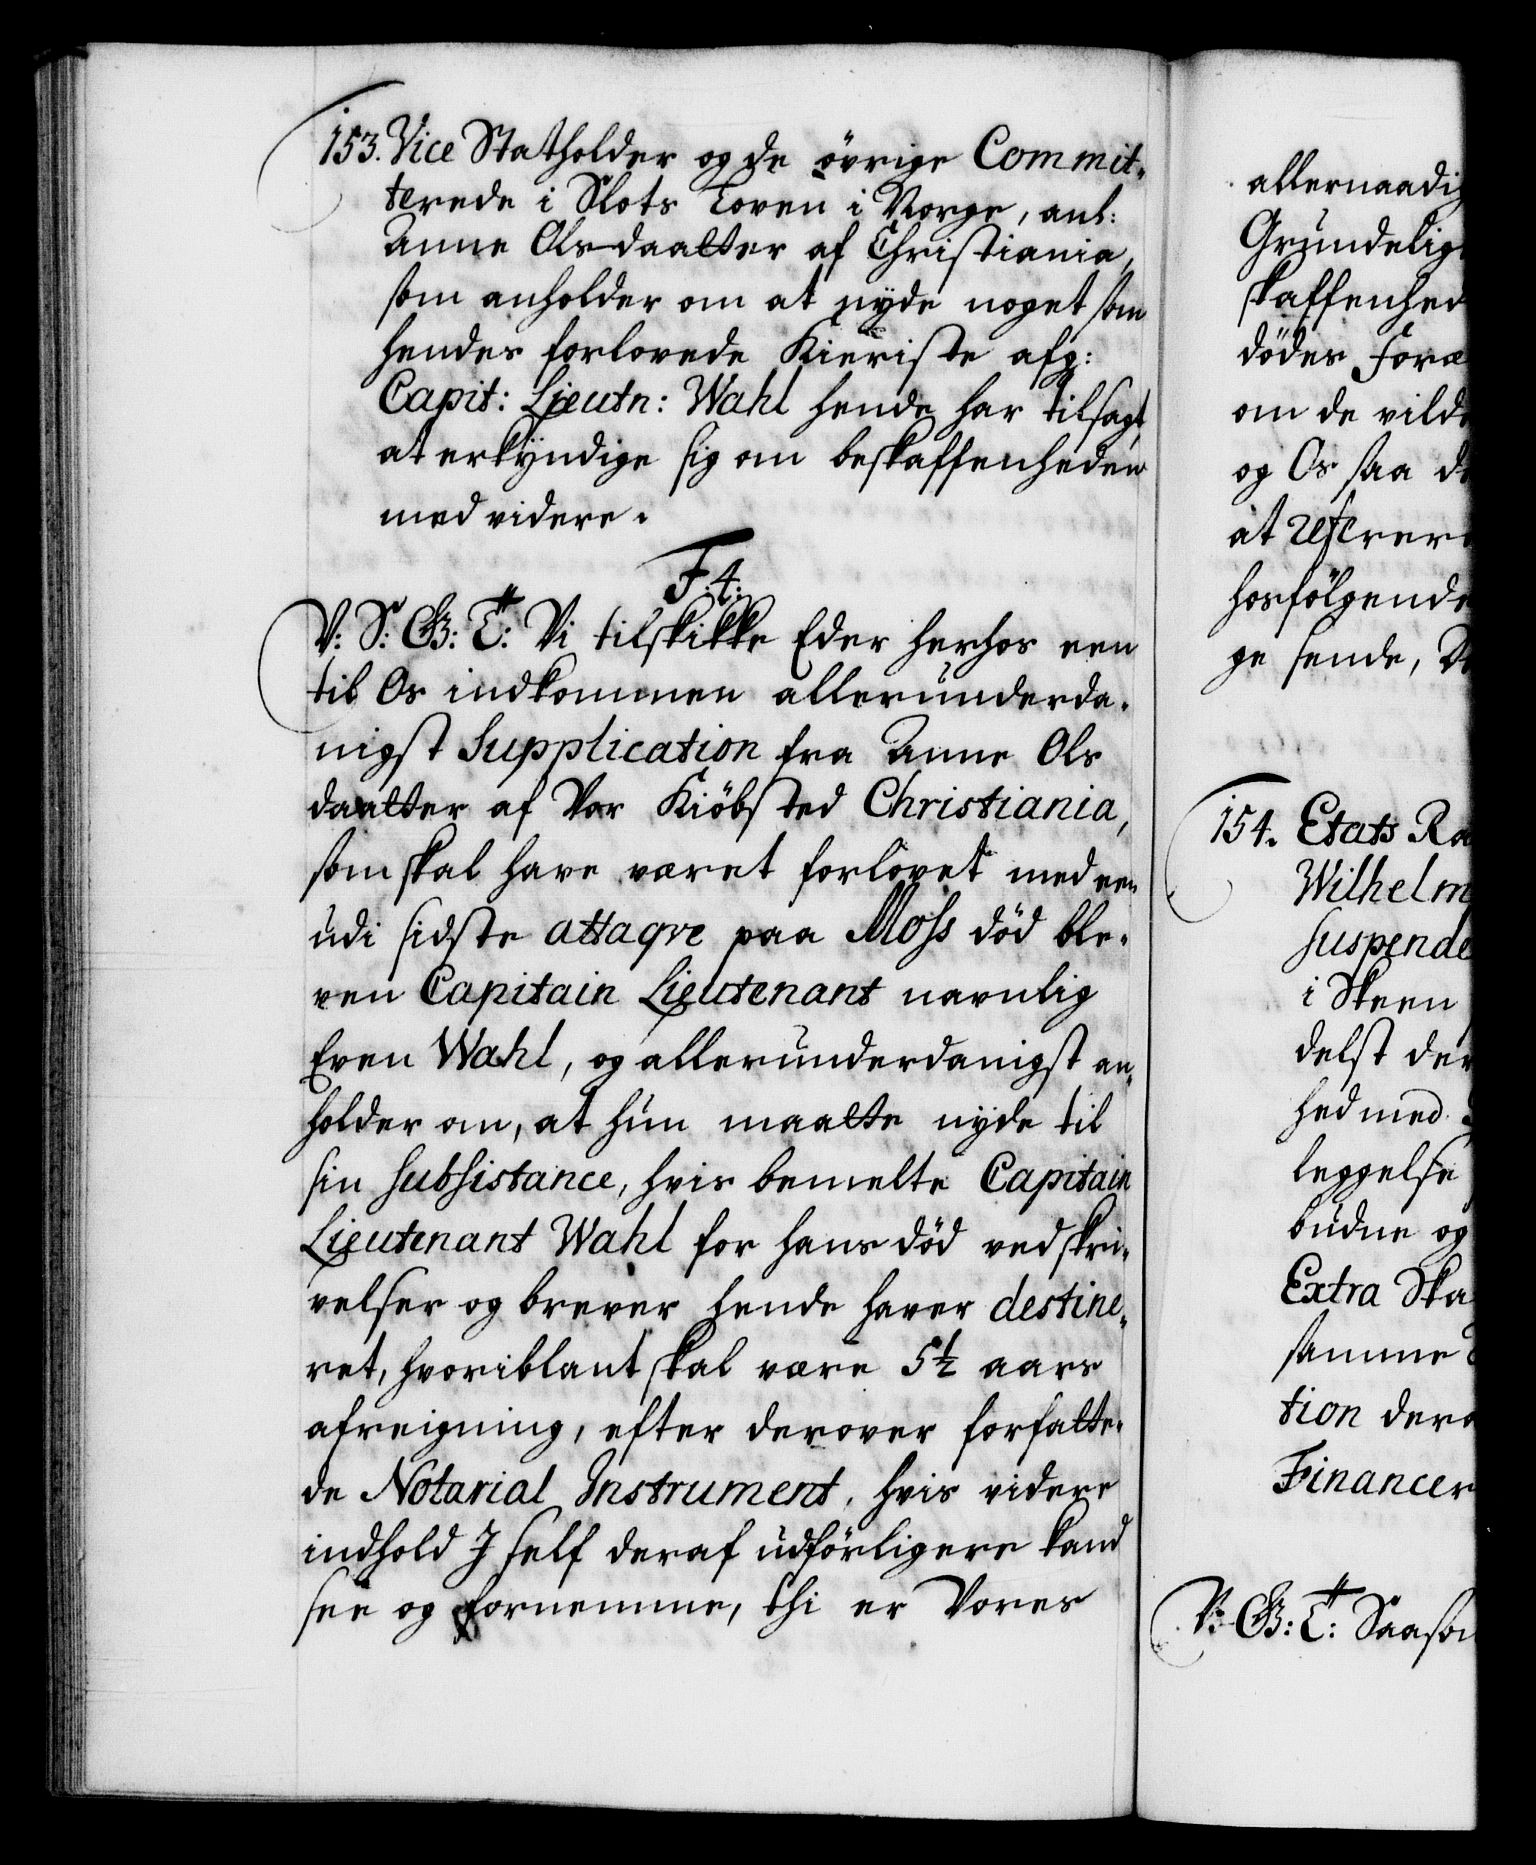 153. Vice Statholder og de övrige Commit-
terede i Slots Loven i Norge, anl:
Anne Olsdaatter af Christiania,
som anholder om at nyde noget som
hendes forlovede Kieriste afg:
Capit: Lieutn: Wahl hende har tilsagt,
at erkyndige sig om beskaffenheden
med videre.
F. 4.
V: S: G: T: Vi tilskikke Eder herhos een
til Os indkommen allerunderda-
nigst Supplication fra Anne Ols
daatter af Vor Kiöbsted Christiania,
som skal have været forlovet med een
udi sidste attaqve paa Moss död ble-
ven Capitain Lieutenant navnlig
Even Wahl, og allerunderdanigst an-
holder om, at hun maatte nyde til
sin subsistance, hvis bemelte Capitain
Lieutenant Wahl for hans död ved skri-
velser og brever hende haver destine-
ret, hvoriblant skal være 5½ aars
afreigning, efter derover forfatte-
de Notarial Instrument, hvis videre
indhold I self deraf udförligere kand
see og fornemme, thi er Vores
allernaadig
Grundelig
skaffenhed
dödes Foræ
om de vilde
og Os saa d
at referere
hosfölgende
ge sende, D
154. Etats Ra
Wilhelm
suspende
i Skeen
delst der
hed med
leggelse
budne og
Extra Ska
samme
tion dera
Financer
V: G: T: Saaso